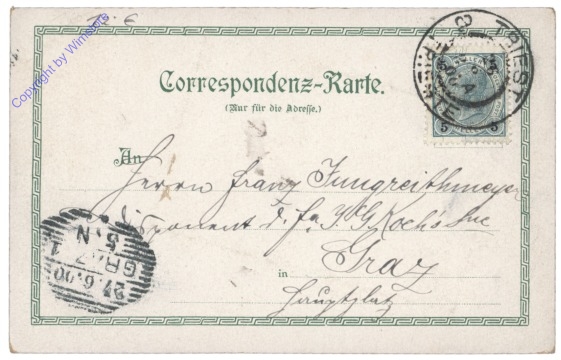 Copyright by Wimsners
Correspondenz-Karte.
(Nur für die Adresse.)
TRIEST
TRIESTE
5 5
An
Herrn Franz Jungreithmeyer
Disponent d. fa. J. G. Koch's
in Graz
Hauptplatz
GRAZ 1
27.6.00
5.N